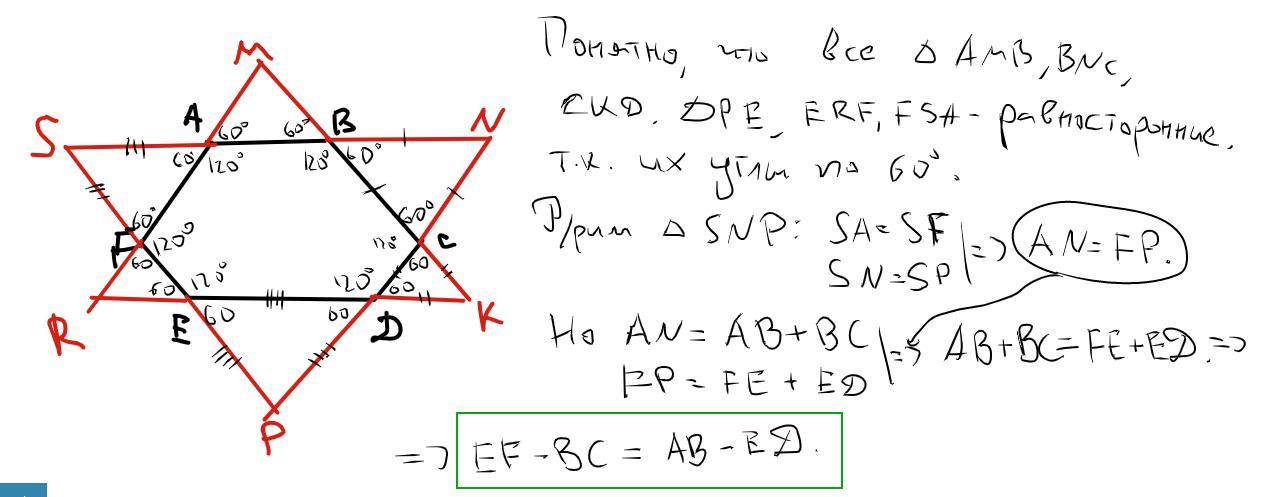 M
S
A
60°
60°
B
N
60°
120°
120°
60°
60°
F
120°
60°
120°
C
60
60
120°
120°
60
60
R
E
60
60
D
K
P
Понятно, что все Δ AMB, BNC,
CKD, DPE, ERF, FSA - равносторонние,
т.к. их углы по 60°.
Р/рим Δ SNP: SA = SF
SN = SP | => AN = FP.
Но AN = AB + BC
FP = FE + ED | => AB + BC = FE + ED. =>
=> EF - BC = AB - ED.